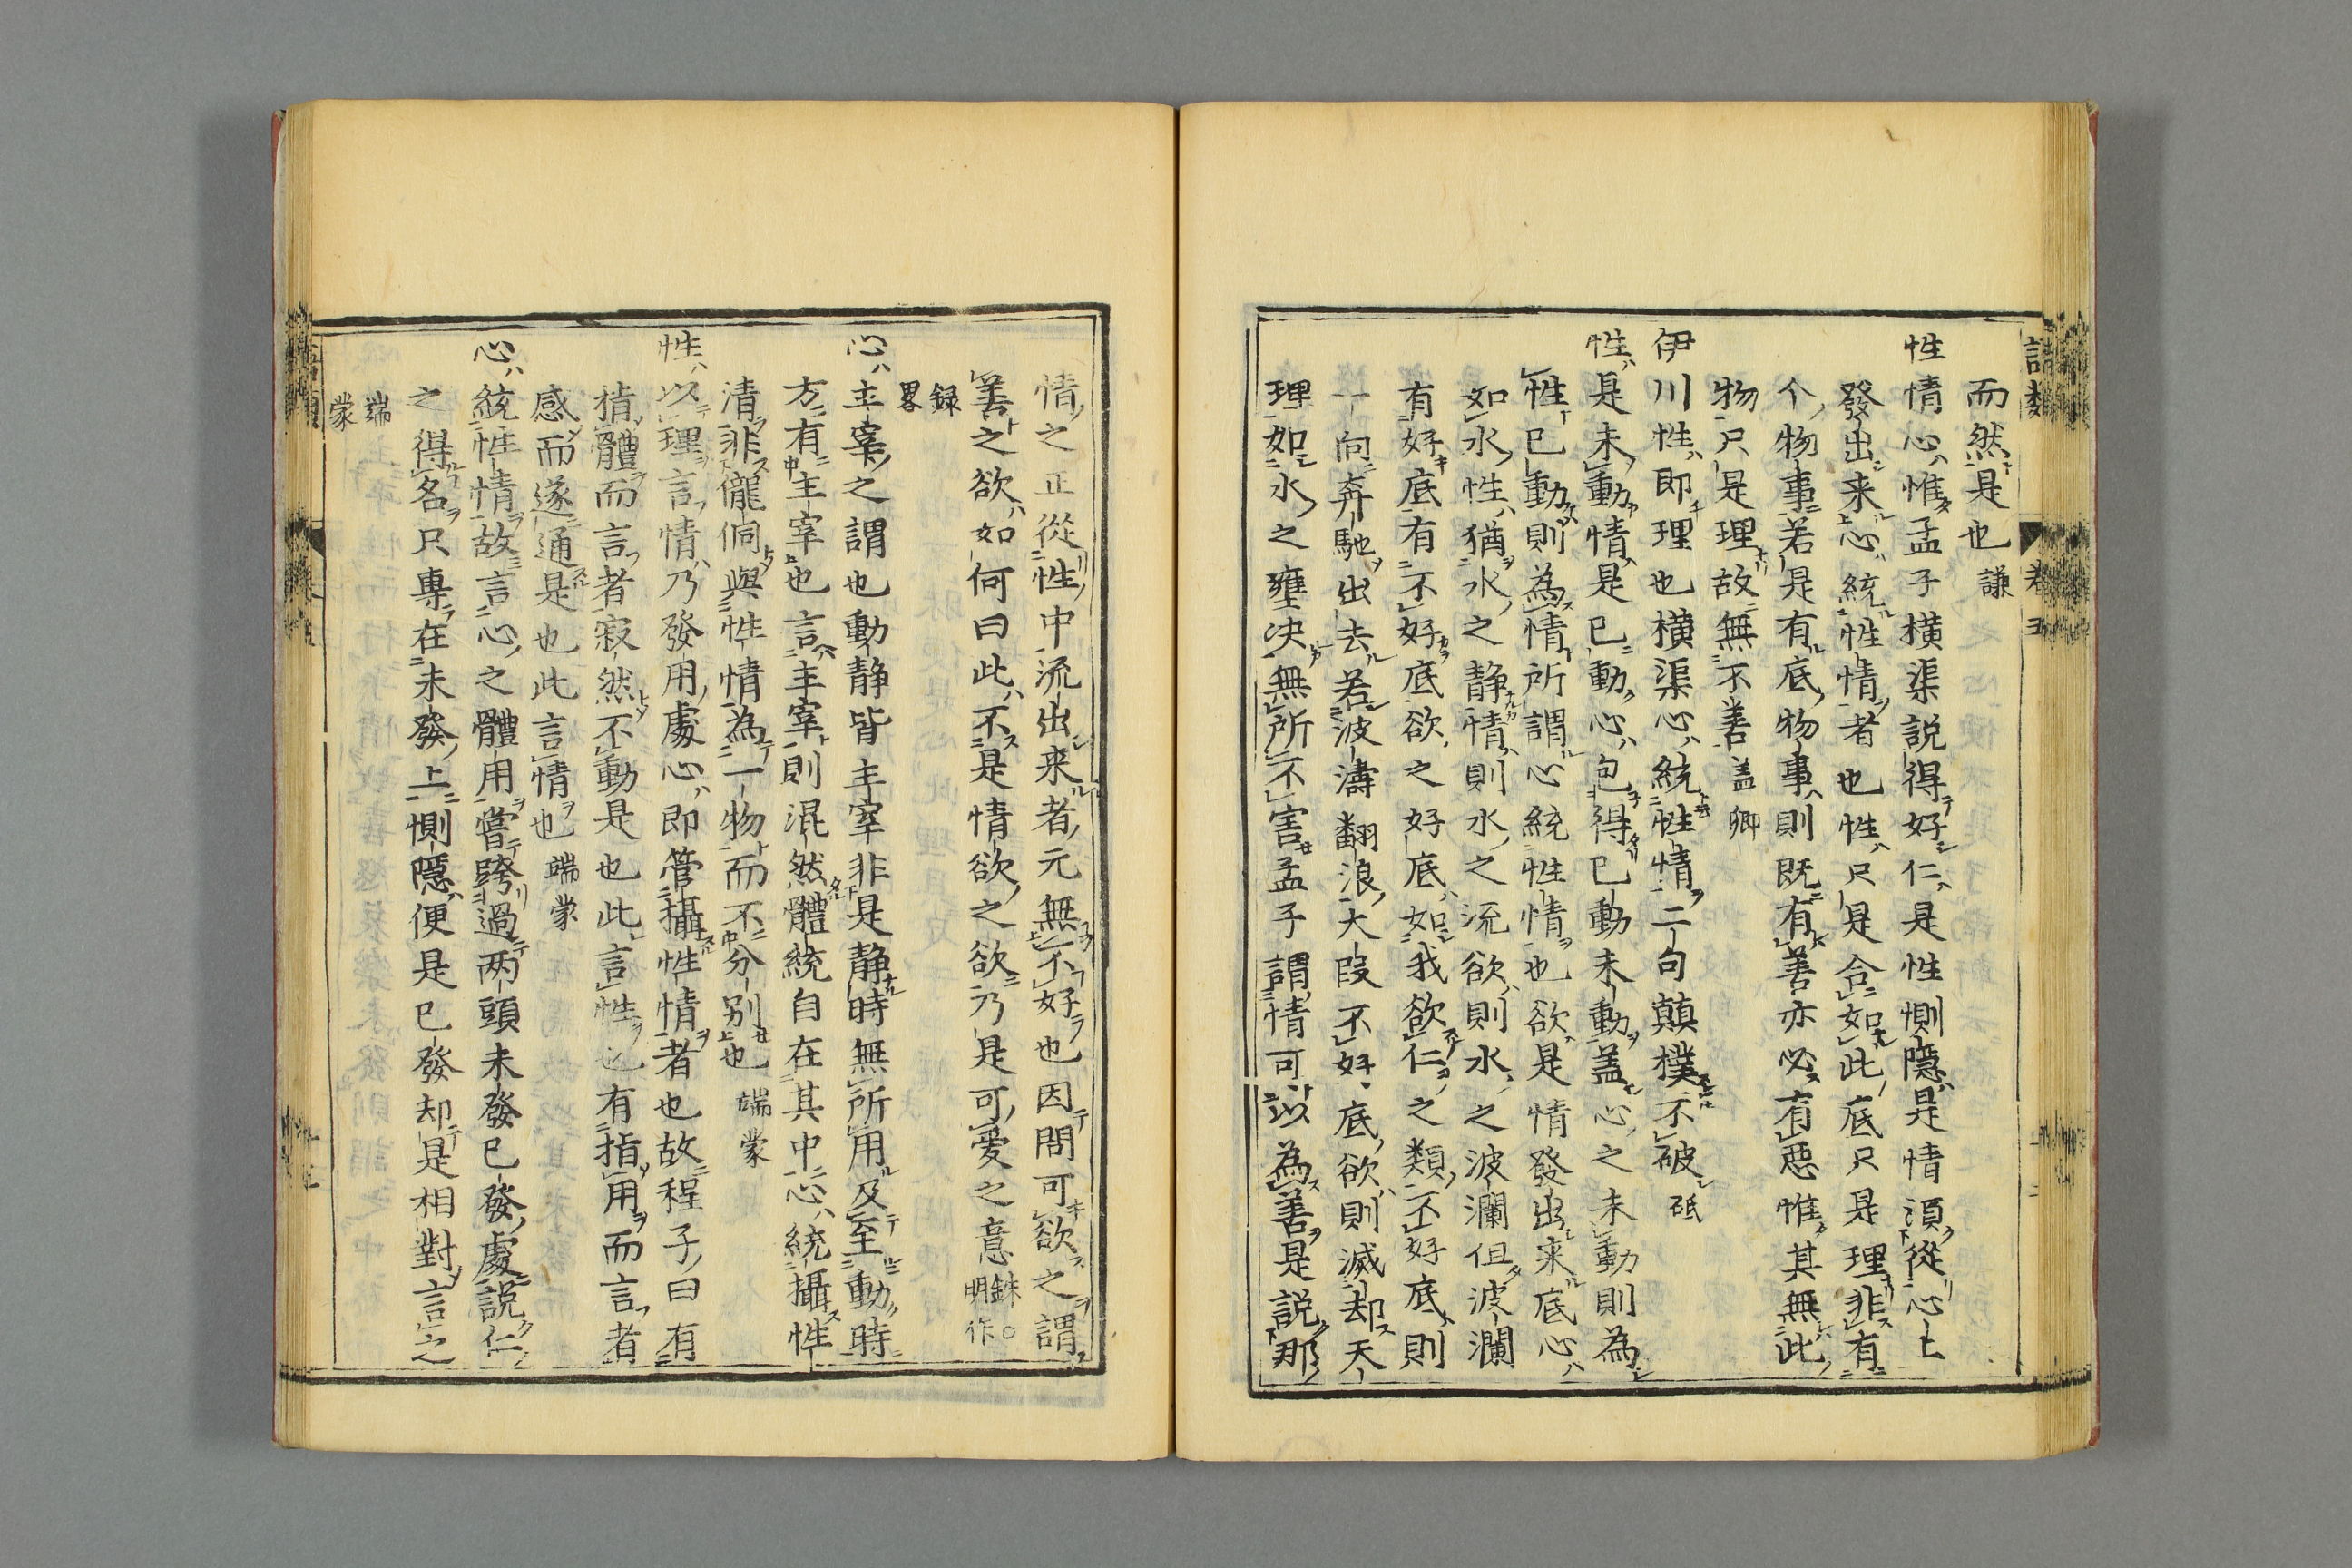 而然是也謙
性情心惟孟子横渠説得好仁是性惻隱是情湏從心上
發出来心統性情者也性只是合如此底只是理非有
个物事若是有底物事則既有善亦必有惡惟其無此
物只是理故無不善盖卿
伊川性即理也横渠心統性情二句顛撲不破砥
性是未動情是已動心包得已動未動盖心之未動則為
性已動則為情所謂心統性情也欲是情發出来底心
如水性猶水之静情則水之流欲則水之波瀾但波瀾
有好底有不好底欲之好底如我欲仁之類不好底則
一向奔馳出去若波濤翻浪大段不好底欲則滅却天
理如水之壅决無所不害孟子謂情可以為善是説那
情之正從性中流出来者元無不好也因問可欲之謂
善之欲如何曰此不是情欲之欲乃是可愛之意銖○明作
録畧
心主宰之謂也動静皆主宰非是静時無所用及至動時
方有主宰也言主宰則混然體統自在其中心統攝性
清非儱侗與性情為一物而不分别也端蒙
性以理言情乃發用處心即管攝性情者也故程子曰有
指體而言者寂然不動是也此言性也有指用而言者
感而遂通是也此言情也端蒙
心統性情故言心之體用嘗跨過两頭未發已發處説仁
之得名只專在未發上惻隱便是已發却是相對言之
端蒙
語類
卷五